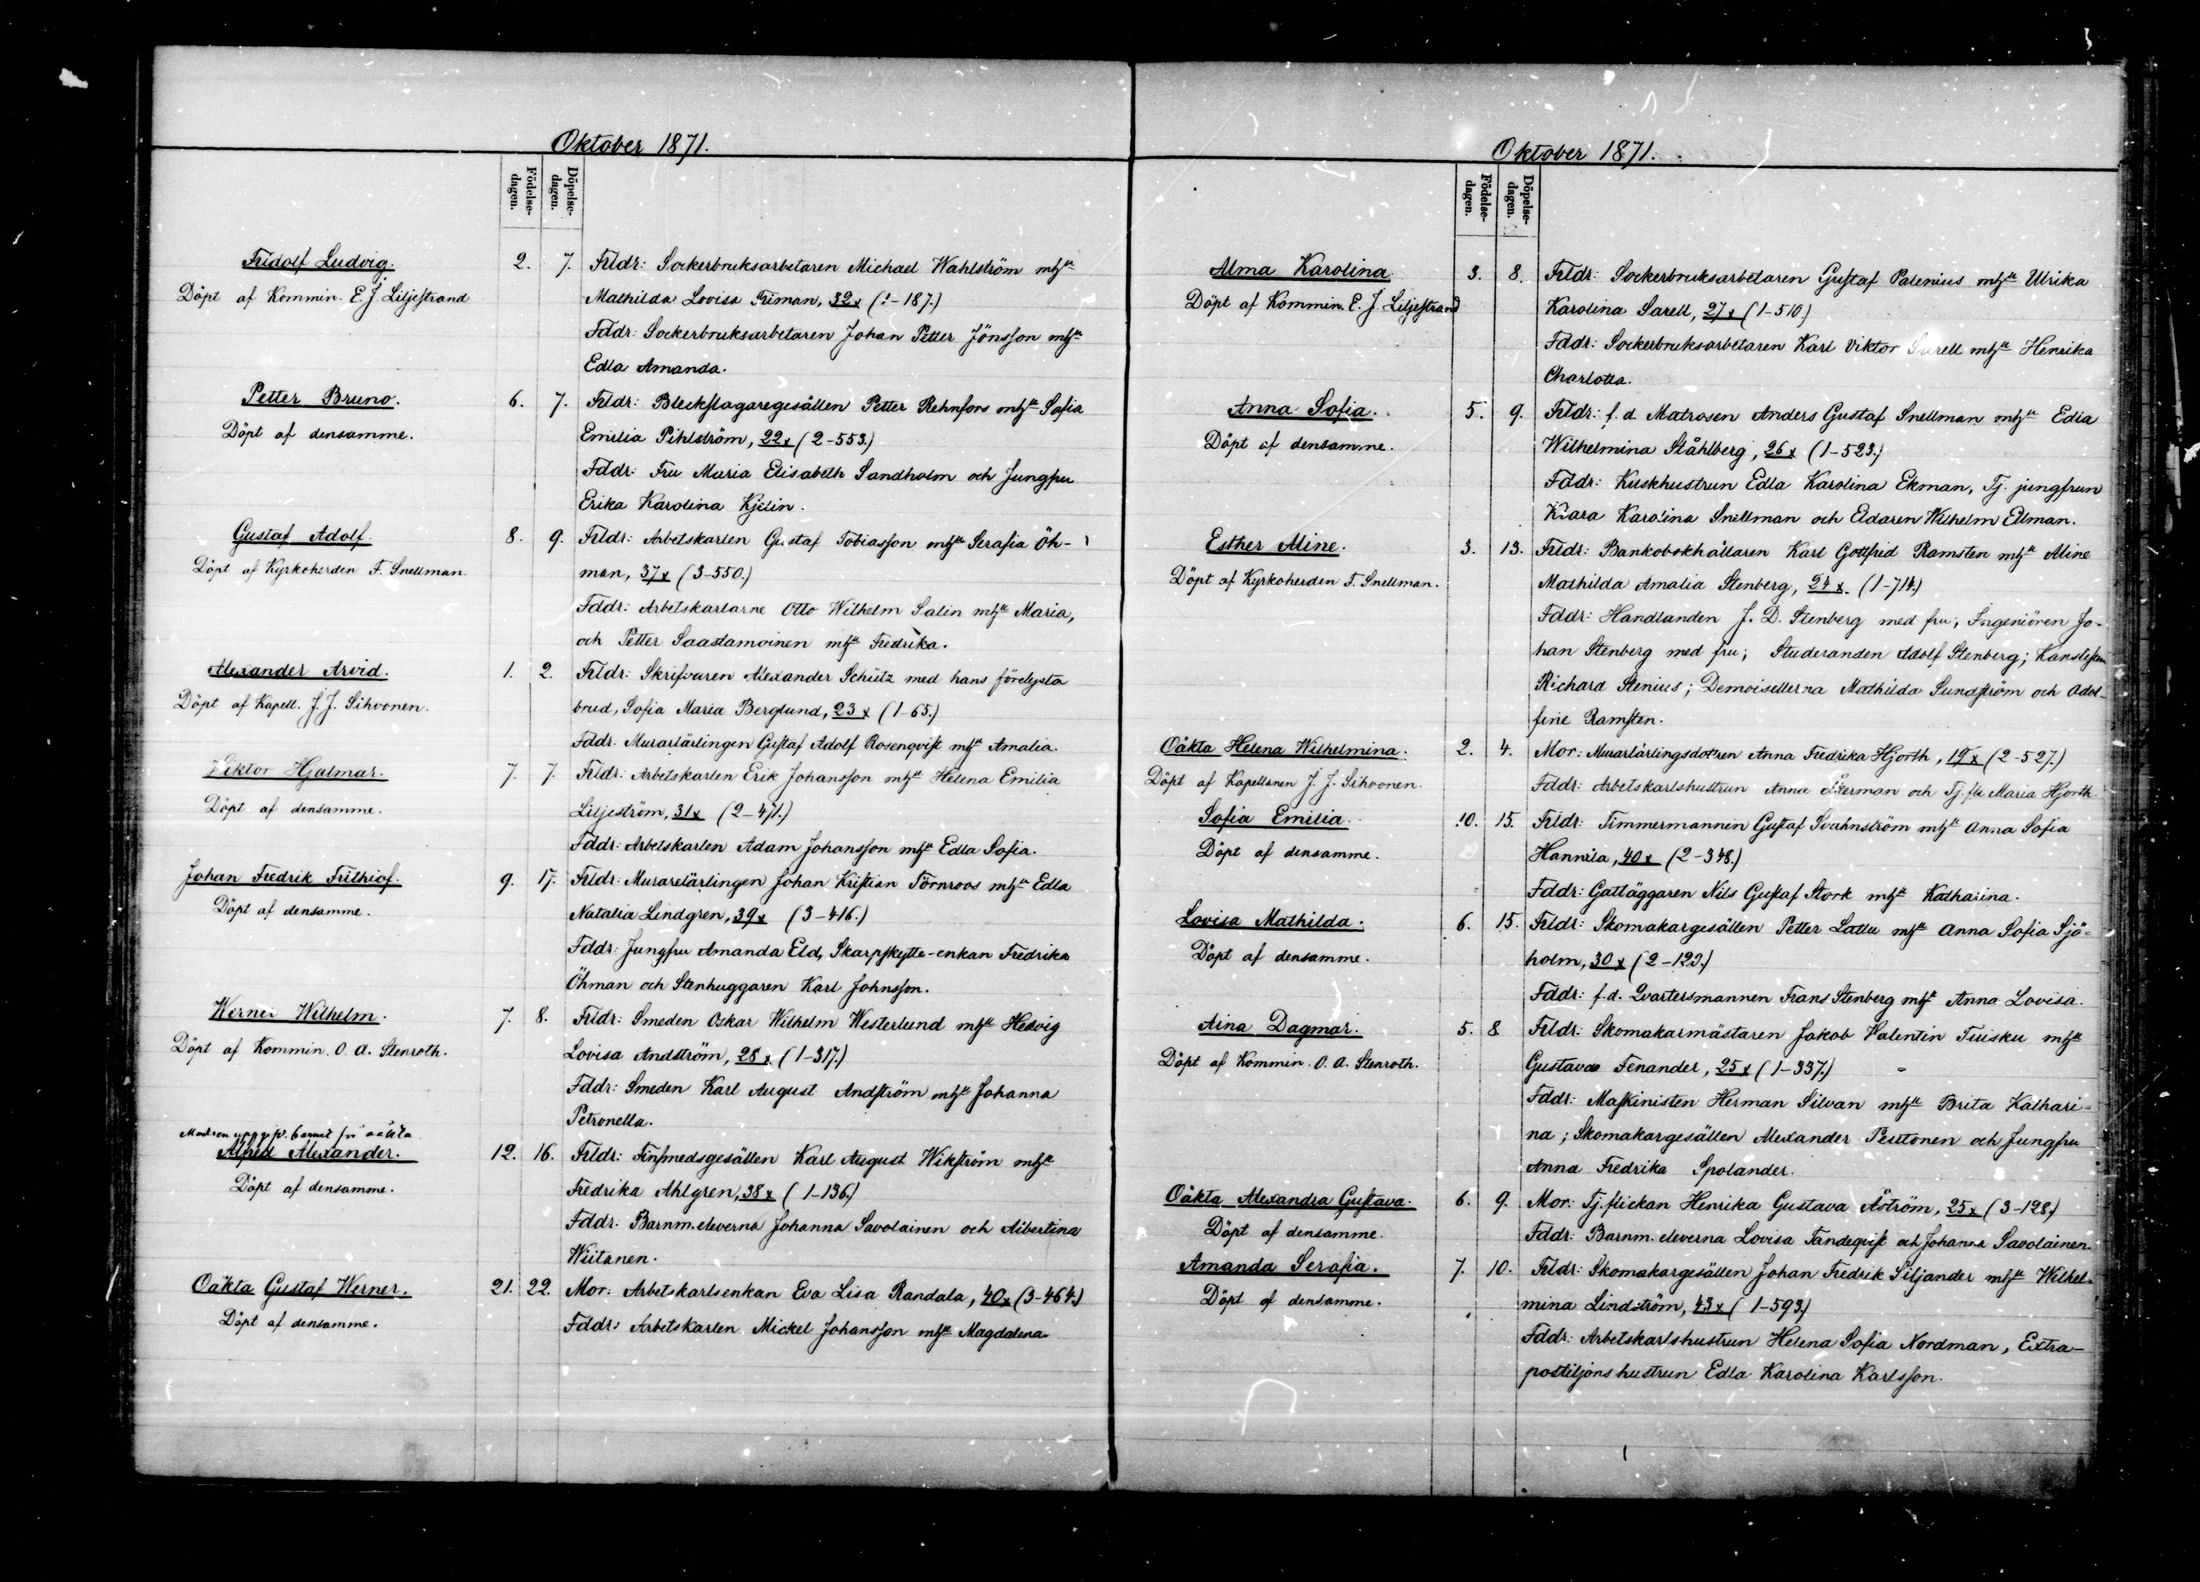 Oktober 1871.
Födelse-dagen. Döpelse-dagen.
Fridolf Ludvig. 2. 7. Frldr: Sockerbruksarbetaren Michael Wahlström mhu
Döpt af Kommin. E. J. Liljestrand Mathilda Lovisa Friman, 32x (1-187.)
Fddr: Sockerbruksarbetaren Johan Petter Jönsson mhu
Edla Amanda.
Petter Bruno. 6. 7. Frldr: Bleckslagaregesällen Petter Rehnfors mhu Sofia
Döpt af densamme. Emilia Pihlström, 22x (2-553.)
Fddr: Fru Maria Elisabeth Sandholm och Jungfru
Erika Karolina Kjelin.
Gustaf Adolf. 8. 9. Frldr: Arbetskarlen Gustaf Tobiasson mhu Serafia Öh-
Döpt af Kyrkoherden F. Snellman. man, 37x (3-550.)
Fddr: Arbetskarlarne Otto Wilhelm Salin mhu Maria,
och Petter Saastamoinen mhu Fredrika.
Alexander Arvid. 1. 2. Frldr: Skrifvaren Alexander Schütz med hans förelysta
Döpt af Kapell. J. J. Sihvonen. brud, Sofia Maria Berglund, 23x (1-65.)
Fddr. Murarlärlingen Gustaf Adolf Rosenqvist mhu Amalia.
Viktor Hjalmar. 7. 7. Frldr: Arbetskarlen Erik Johansson mhu Helena Emilia
Döpt af densamme. Liljeström, 31x (2-471.)
Fddr: Arbetskarlen Adam Johansson mhu Edla Sofia.
Johan Fredrik Frithiof. 9. 17. Frldr: Murarelärlingen Johan Kristian Törnroos mhu Edla
Döpt af densamme. Natalia Lindgren, 39x (3-416.)
Fddr: Jungfru Amanda Eld, Skarpskytte-enkan Fredrika
Öhman och Stenhuggaren Karl Johnsson.
Werner Wilhelm. 7. 8. Frldr: Smeden Oskar Wilhelm Westerlund mhu Hedvig
Döpt af Kommin. O. A. Stenroth. Lovisa Andström, 28x (1-317.)
Fddr: Smeden Karl August Andström mhu Johanna
Petronella.
Modren uppgif. barnet för oäkta
Alfred Alexander. 12. 16. Frldr: Finsmedsgesällen Karl August Wikström mhu
Döpt af densamme. Fredrika Ahlgren, 38x (1-136.)
Fddr: Barnm. eleverna Johanna Savolainen och Albertina
Wiitanen.
Oäkta Gustaf Werner. 21. 22. Mor: Arbetskarlsenkan Eva Lisa Randala, 40x (3-464.)
Döpt af densamme. Fddr: Arbetskarlen Mickel Johansson mhu Magdalena.
Oktober 1871.
Födelse-dagen. Döpelse-dagen.
Alma Karolina 3. 8. Frldr: Sockerbruksarbetaren Gustaf Palenius mhu Ulrika
Döpt af Kommin. E. J. Liljestrand Karolina Sarell, 27x (1-510.)
Fddr: Sockerbruksarbetaren Karl Viktor Sarell mhu Henrika
Charlotta.
Anna Sofia. 5. 9. Frldr: f. d. Matrosen Anders Gustaf Snellman mhu Edla
Döpt af densamme. Wilhelmina Ståhlberg, 26x (1-523.)
Fddr: Kuskhustrun Edla Karolina Ekman, Tj. jungfrun
Klara Karolina Snellman och Eldaren Wilhelm Ellman.
Esther Aline. 3. 13. Frldr: Bankobokhållaren Karl Gottfrid Ramsten mhu Aline
Döpt af Kyrkoherden F. Snellman. Mathilda Amalia Stenberg, 24x. (1-714.)
Fddr: Handlanden J. D. Stenberg med fru; Ingeniören Jo-
han Stenberg med fru; Studeranden Adolf Stenberg;
Richard Stenius; Demoisellerna Mathilda Sundström och Adol-
fine Ramsten.
Oäkta Helena Wilhelmina. 2. 4. Mor: Murarlärlingsdottren Anna Fredrika Hjorth, 19x (2-527.)
Döpt af Kapellanen J. J. Sihvonen. Fddr: Arbetskarlshustrun Anna Åkerman och Tj. fl. Maria Hjorth.
Sofia Emilia. 10. 15. Frldr: Timmermannen Gustaf Svahnström mhu Anna Sofia
Döpt af densamme. Hannila, 40x (2-348.)
Fddr: Gatläggaren Nils Gustaf Stork mhu Katharina.
Lovisa Mathilda. 6. 15. Frldr: Skomakargesällen Petter Lattu mhu Anna Sofia Sjö-
Döpt af densamme. holm, 30x (2-129.)
Fddr: f. d. Qvartersmannen Frans Stenberg mhu Anna Lovisa.
Aina Dagmar. 5. 8. Frldr: Skomakarmästaren Jakob Valentin Tuisku mhu
Döpt af Kommin. O. A. Stenroth. Gustava Fenander, 25x (1-337.)
Fddr: Maskinisten Herman Silvan mhu Brita Kathari-
na; Skomakargesällen Alexander Penttonen och Jungfru
Anna Fredrika Spolander.
Oäkta Alexandra Gustava. 6. 9. Mor: Tj. flickan Henrika Gustava Åström, 25x (3-128.)
Döpt af densamme. Fddr: Barnm. eleverna Lovisa Tandeqvist och Johanna Savolainen.
Amanda Serafia. 7. 10. Frldr: Skomakargesällen Johan Fredrik Siljander mhu Wilhel-
Döpt af densamme. mina Lindström, 43x (1-593.)
Fddr: Arbetskarlshustrun Helena Sofia Nordman, Extra-
postiljonshustrun Edla Karolina Karlsson.